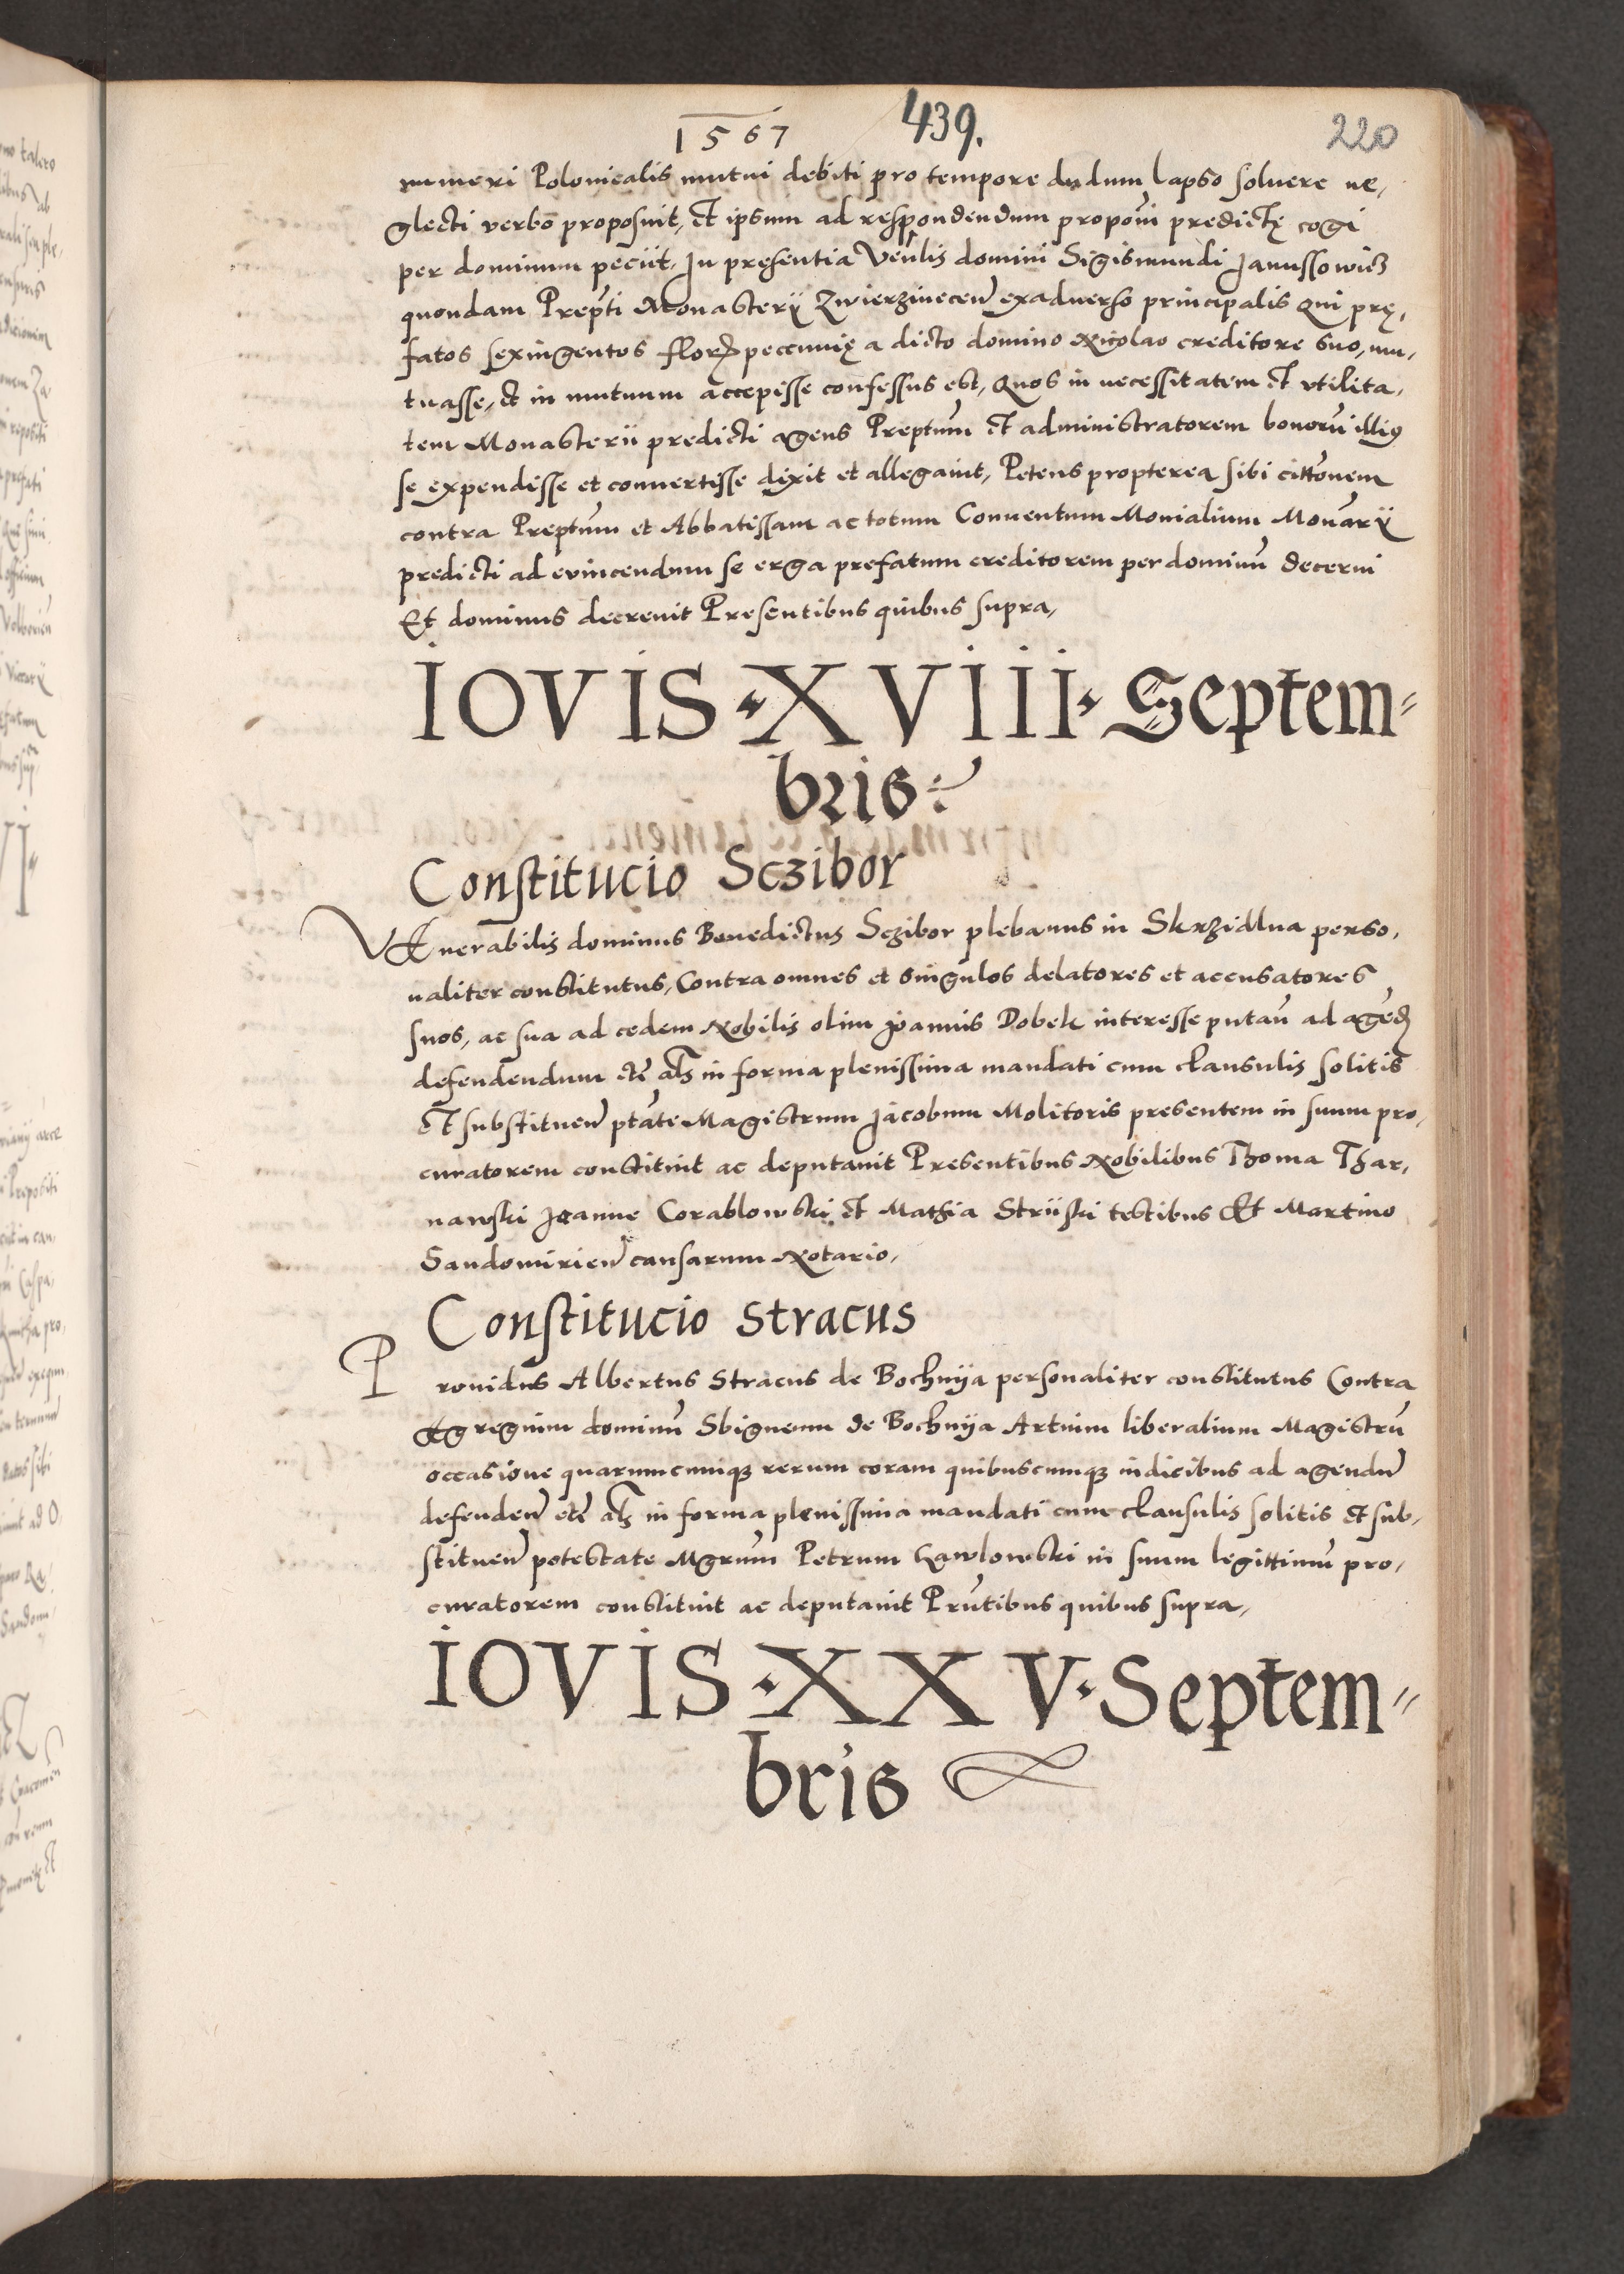 1567 439. 220
numeri Polonicalis mutui debiti pro tempore dudum lapso soluere ne,
glecti verbo proposuit, et ipsum ad respondendum proponi predictę cogi
per dominum peciit. In presentia Venlis domini Sigismundi Janussowicz
quondam Prepti Monasterÿ Zwierzinecen exaduerso principalis Qui prę,
fatos sexingentos flor peccunię a dicto domino Nicolao creditore suo, mu,
tuasse, et in mutuum accepisse confessus est, Quos in necessitatem et vtilita,
tem Monasterii predicti agens Preptum et administratorem bonoru illius
se expendisse et conuertisse dixit et allegauit, Petens propterea sibi cittonem
contra Preptum et Abbatissam ac totum Conuentum Monialium Monarÿ
predicti ad evincendum se erga prefatum creditorem per dominu decerni
Et dominus decreuit Presentibus quibus supra,
IOVIS · XVIII · Septem=
bris
Constitucio Sczibor
VEnerabilis dominus Benedictus Sczibor plebanus in Skrzidlna perso,
naliter constitutus, Contra omnes et singulos delatores et accusatores
suos, ac sua ad cedem Nobilis olim Joannis Dobek interesse putan ad agend
defendendum etc als in forma plenissima mandati cum clausulis solitis
Et substituen ptate Magistrum Jacobum Molitoris presentem in suum pro,
curatorem constituit ac deputauit Presentibus Nobilibus Thoma Thar,
nawski Joanne Corablowski et Mathia Striiski testibus Et Martino
Sandomirien causarum Notario,
Constitucio Stracus
Prouidus Albertus Stracus de Bochnÿa personaliter constitutus Contra
Egregium dominu Sbigneum de Bochnÿa Artium liberalium Magistru
occasione quarumcumque rerum coram quibuscumque iudicibus ad agendu
defenden etc als in forma plenissima mandati cum clausulis solitis Et sub,
stituen potestate Mgrum Petrum Gawlowski in suum legittimu pro,
curatorem constituit ac deputauit Prntibus quibus supra,
IOVIS · XXV · Septem=
bris